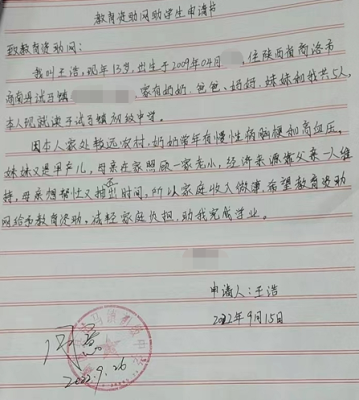 教育资助网助学生申请书
致教育资助网：
我叫王浩，现年13岁，出生于2009年04月 ，住陕西省商洛市
商南县试马镇 ，家有奶奶、爸爸、妈妈、妹妹和我共5人，
本人现就读于试马镇初级中学。
因本人家处较远农村，奶奶常年有慢性病脑梗和高血压，
妹妹又是早产儿，母亲在家照顾一家老小，经济来源靠父亲一人维
持，母亲想帮忙又抽不出时间，所以家庭收入微薄，希望教育资助
网给予教育资助，减轻家庭负担，助我完成学业。
申请人：王浩
2022年9月15日
2022.9.26